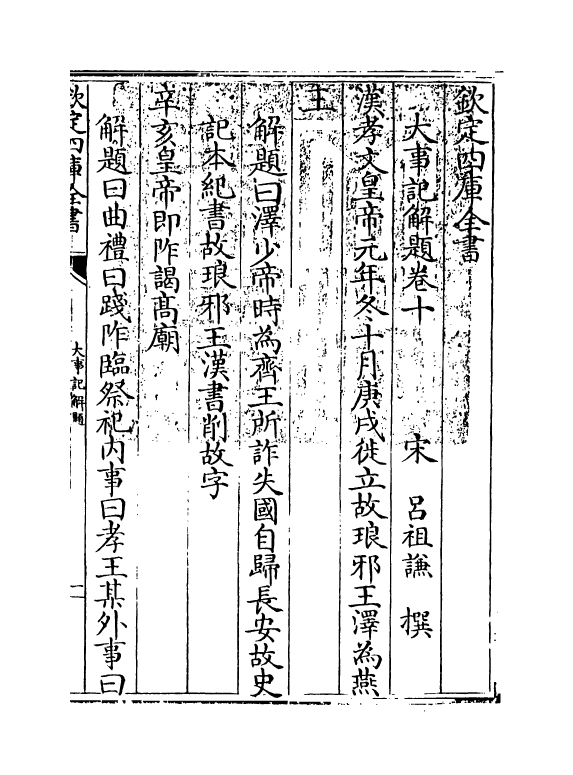 欽定四庫全書
大事記解題卷十
宋 呂祖謙 撰
漢孝文皇帝元年冬十月庚戌徙立故琅邪王澤為燕
王
解題曰澤少帝時為齊王所詐失國自歸長安故史
記本紀書故琅邪王漢書削故字
辛亥皇帝即阼謁髙廟
解題曰曲禮曰踐阼臨祭祀内事曰孝王某外事曰
欽定四庫全書
大事記解題
一